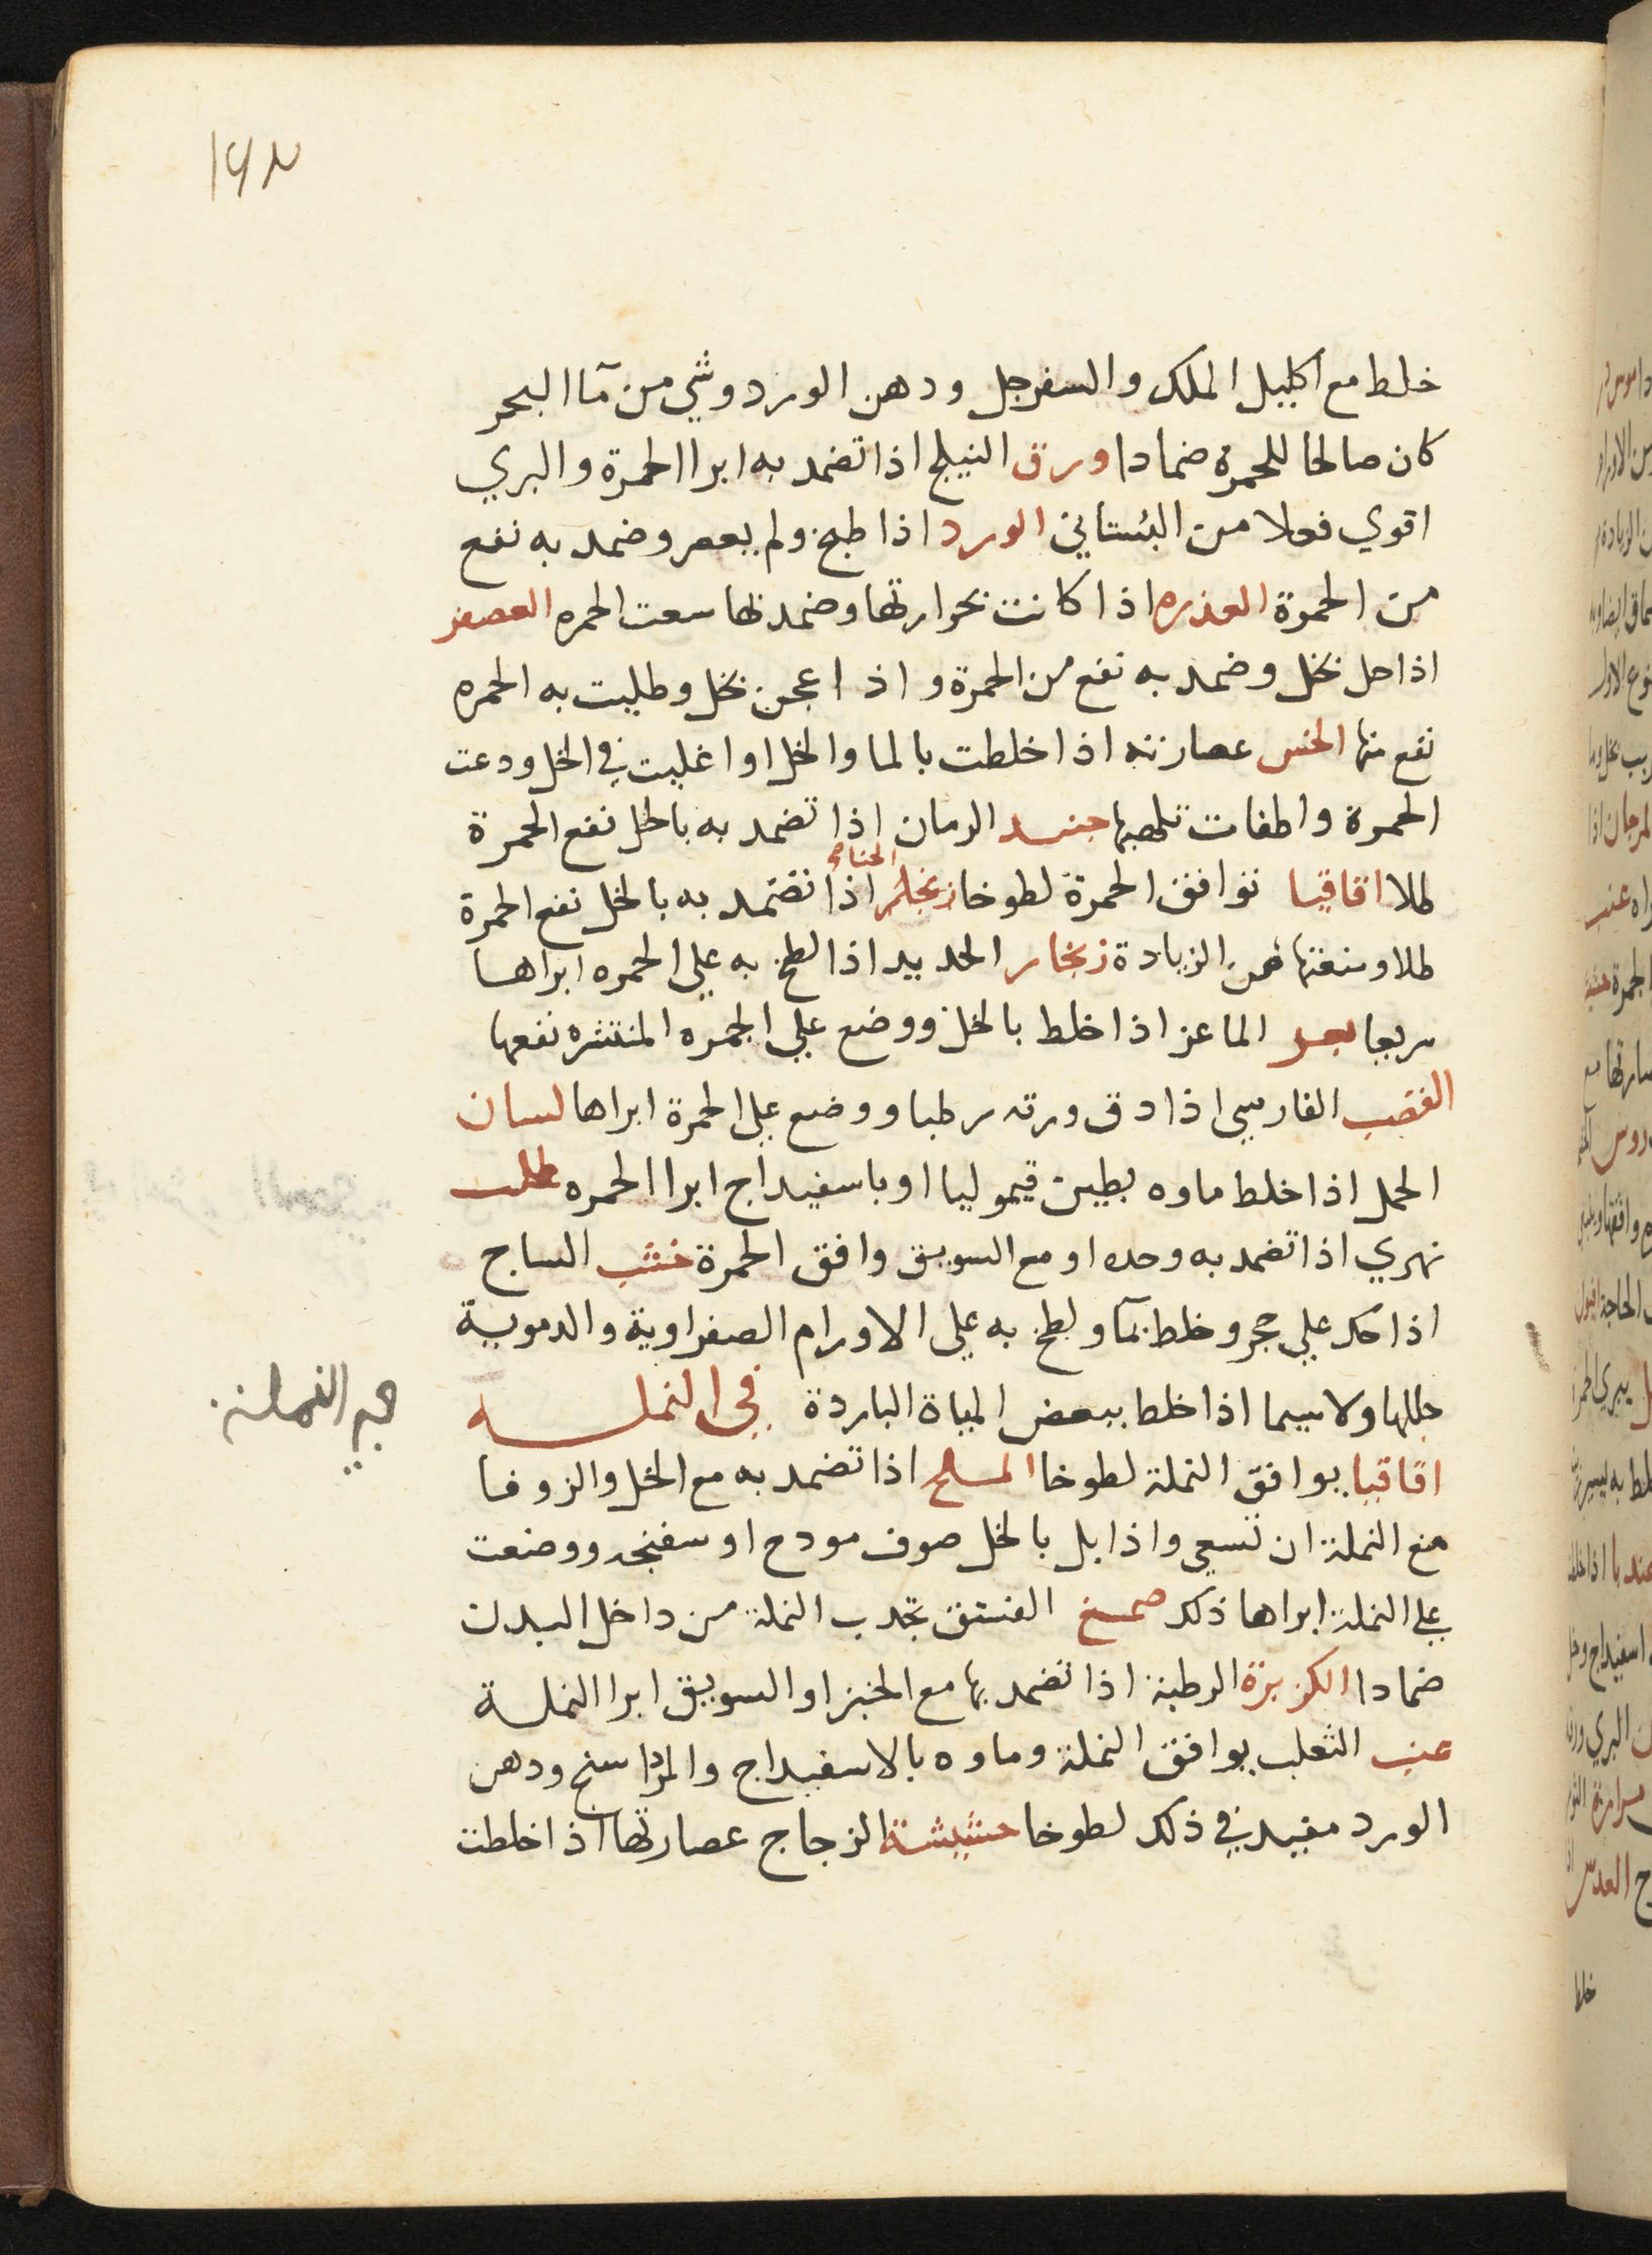 ١٩٢
خلط مع اكليل الملك والسفرجل ودهن الورد وشي من مآ البحر
كان صالحا للحمرة ضمادا ورق النيلج اذا تضمد به ابرا الحمرة والبري
اقوي فعلا من البستاني الورد اذا طبخ ولم يعصر وضمد به نفع
من الحمرة العذره اذا كانت بحرارتها وضمد بها سعت الحمره العصفر
اذا حل بخل وضمد به نفع من الحمرة واذا عجن بخل وطليت به الحمره
نفع منها الخس عصارته اذا خلطت بالما والخل او اغليت في الخل ودعت
الحمرة واطفات تلهبها جنبد الرمان اذا تضمد به بالخل نفع الحمرة
الحنا
طلا اقاقيا توافق الحمرة لطوخا اذا تضمد به بالخل نفع الحمرة
طلا ومنعتها من الزيادة زنجار الحديد اذا لطخ به علي الحمره ابراها
سريعا بعر الماعز اذا خلط بالخل ووضع علي الحمره المنتشره نفعها
القصب الفارسي اذا دق ورقه رطبا ووضع علي الحمرة ابراها لسان
الحمل اذا خلط ماوه بطين قيموليا او باسفيداج ابرا الحمره طحلب
نهري اذا تضمد به وحده او مع السويق وافق الحمرة خشب الساج
اذا حك علي حجر وخلط بمآ ولطخ به علي الاورام الصفراوية والدموية
حللها ولا سيما اذا خلط ببعض المياة الباردة في النمله
في النملة
اقاقيا يوافق النملة لطوخا الملح اذا تضمد به مع الخل والزوفا
منع النملة ان تسعي واذا بل بالخل صوف مودح او سفنجه ووضعت
علي النملة ابراها ذلك صمغ الفستق تجدب النملة من داخل البدن
ضمادا الكزبرة الرطبة اذا تضمد بها مع الخبز او السويق ابرا النملة
عنب الثعلب يوافق النملة وماوه بالاسفيداج والمرداسنج ودهن
الورد مفيد في ذلك لطوخا حشيشة الزجاج عصارتها اذا خلطت